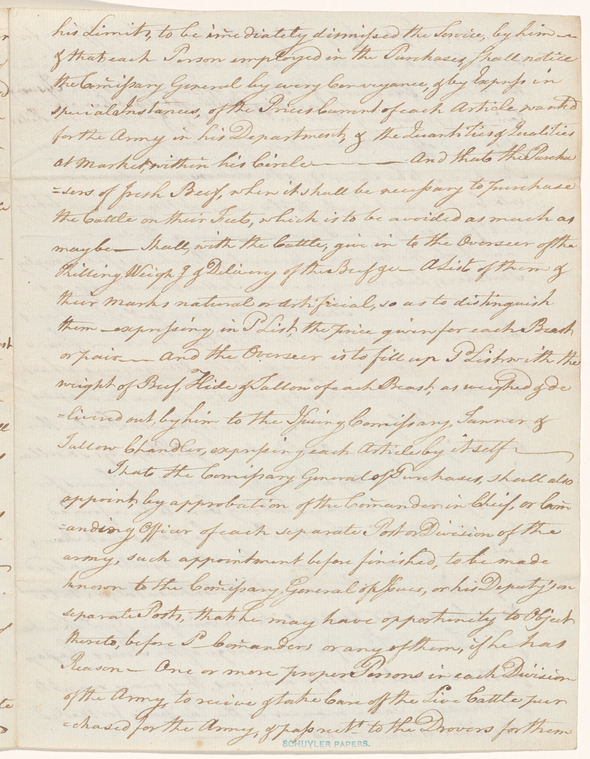 his Limits, to be imediately dismissed the Service, by him—
& that each Person employed in the Purchases, Shall notice
the Comissary General by every Conveyance, & by Express in
special Instances, of the Prices Current of each Article wanted
for the Army in his Department, & the Quantities & Qualities
at Market, within his Circle——— And that the Purcha
=sers of fresh Beef, when it shall be necessary to purchase
the Cattle on their Feet, which is to be avoided as much as
may be— Shall, with the Cattle, give in to the Overseer of the
killing Weighg & Delivery of the Beef &c— A List of them &
their marks natural or artificial, so as to distinguish
them—expressing, in sd List, the price given for each Beast
or pair— And the Overseer is to fill up sd List with the
weight of Beef, Hide & Tallow of each Beast, as weighed & de
=livered out, by him to the Issuing Comissary, Tanner &
Tallow Chandler, expressing each Article by itself—
That the Comissary General of Purchases, shall also
appoint, by approbation of the Comander in Chief, or Com
=anding Officer of each separate Post or Division of the
army, such appointment before finished, to be made
known to the Comissary General of Issues, or his Deputy's on
separate Posts, that he may have opportunity to Object
thereto, before sd Comanders or any of them, if he has
Reason— One or more proper Persons in each Division
of the Army, to receive & take Care of the Live Cattle pur
=chased for the Army, & pass rects to the Drovers for them
SCHUYLER PAPERS.